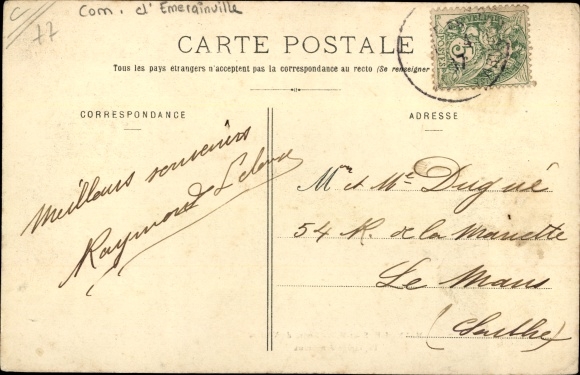 77
Com. d'Emerainville
CARTE POSTALE
Tous les pays étrangers n'acceptent pas la correspondance au recto (Se renseigner
CORRESPONDANCE
ADRESSE
Meilleurs souvenirs
Raymond
Mr et Me Dugué
54 R. de la Mariette
Le Mans
(Sarthe)